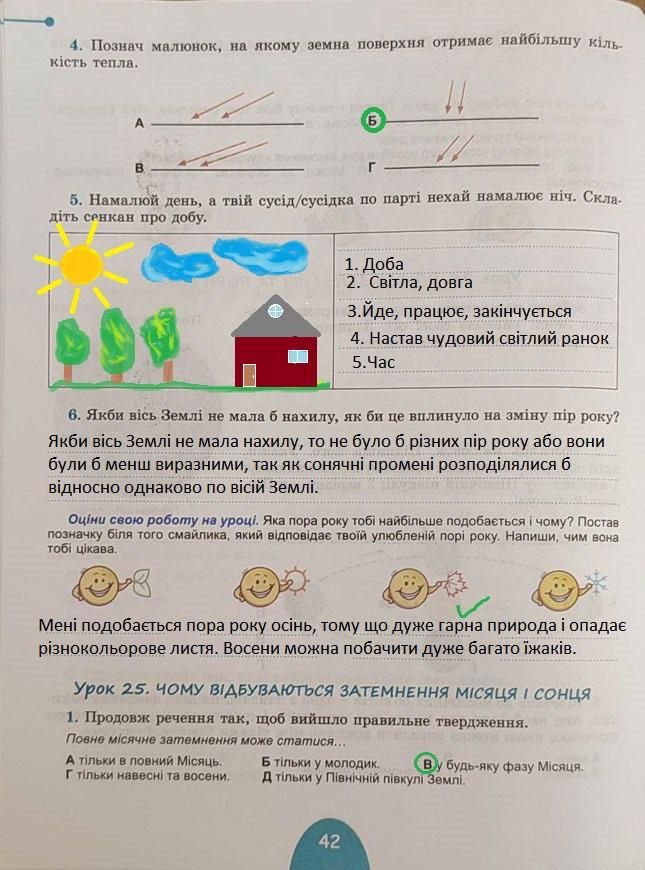 4. Познач малюнок, на якому земна поверхня отримає найбільшу кіль-
кість тепла.
А
Б
В
Г
5. Намалюй день, а твій сусід/сусідка по парті нехай намалює ніч. Скла-
діть сенкан про добу.
1. Доба
2. Світла, довга
3.Йде, працює, закінчується
4. Настав чудовий світлий ранок
5.Час
6. Якби вісь Землі не мала б нахилу, як би це вплинуло на зміну пір року?
Якби вісь Землі не мала нахилу, то не було б різних пір року або вони
були б менш виразними, так як сонячні промені розподілялися б
відносно однаково по вісій Землі.
Оціни свою роботу на уроці. Яка пора року тобі найбільше подобається і чому? Постав
позначку біля того смайлика, який відповідає твоїй улюбленій порі року. Напиши, чим вона
тобі цікава.
Мені подобається пора року осінь, тому що дуже гарна природа і опадає
різнокольорове листя. Восени можна побачити дуже багато їжаків.
Урок 25. ЧОМУ ВІДБУВАЮТЬСЯ ЗАТЕМНЕННЯ МІСЯЦЯ І СОНЦЯ
1. Продовж речення так, щоб вийшло правильне твердження.
Повне місячне затемнення може статися...
А тільки в повний Місяць. Б тільки у молодик. В у будь-яку фазу Місяця.
Г тільки навесні та восени. Д тільки у Північній півкулі Землі.
42